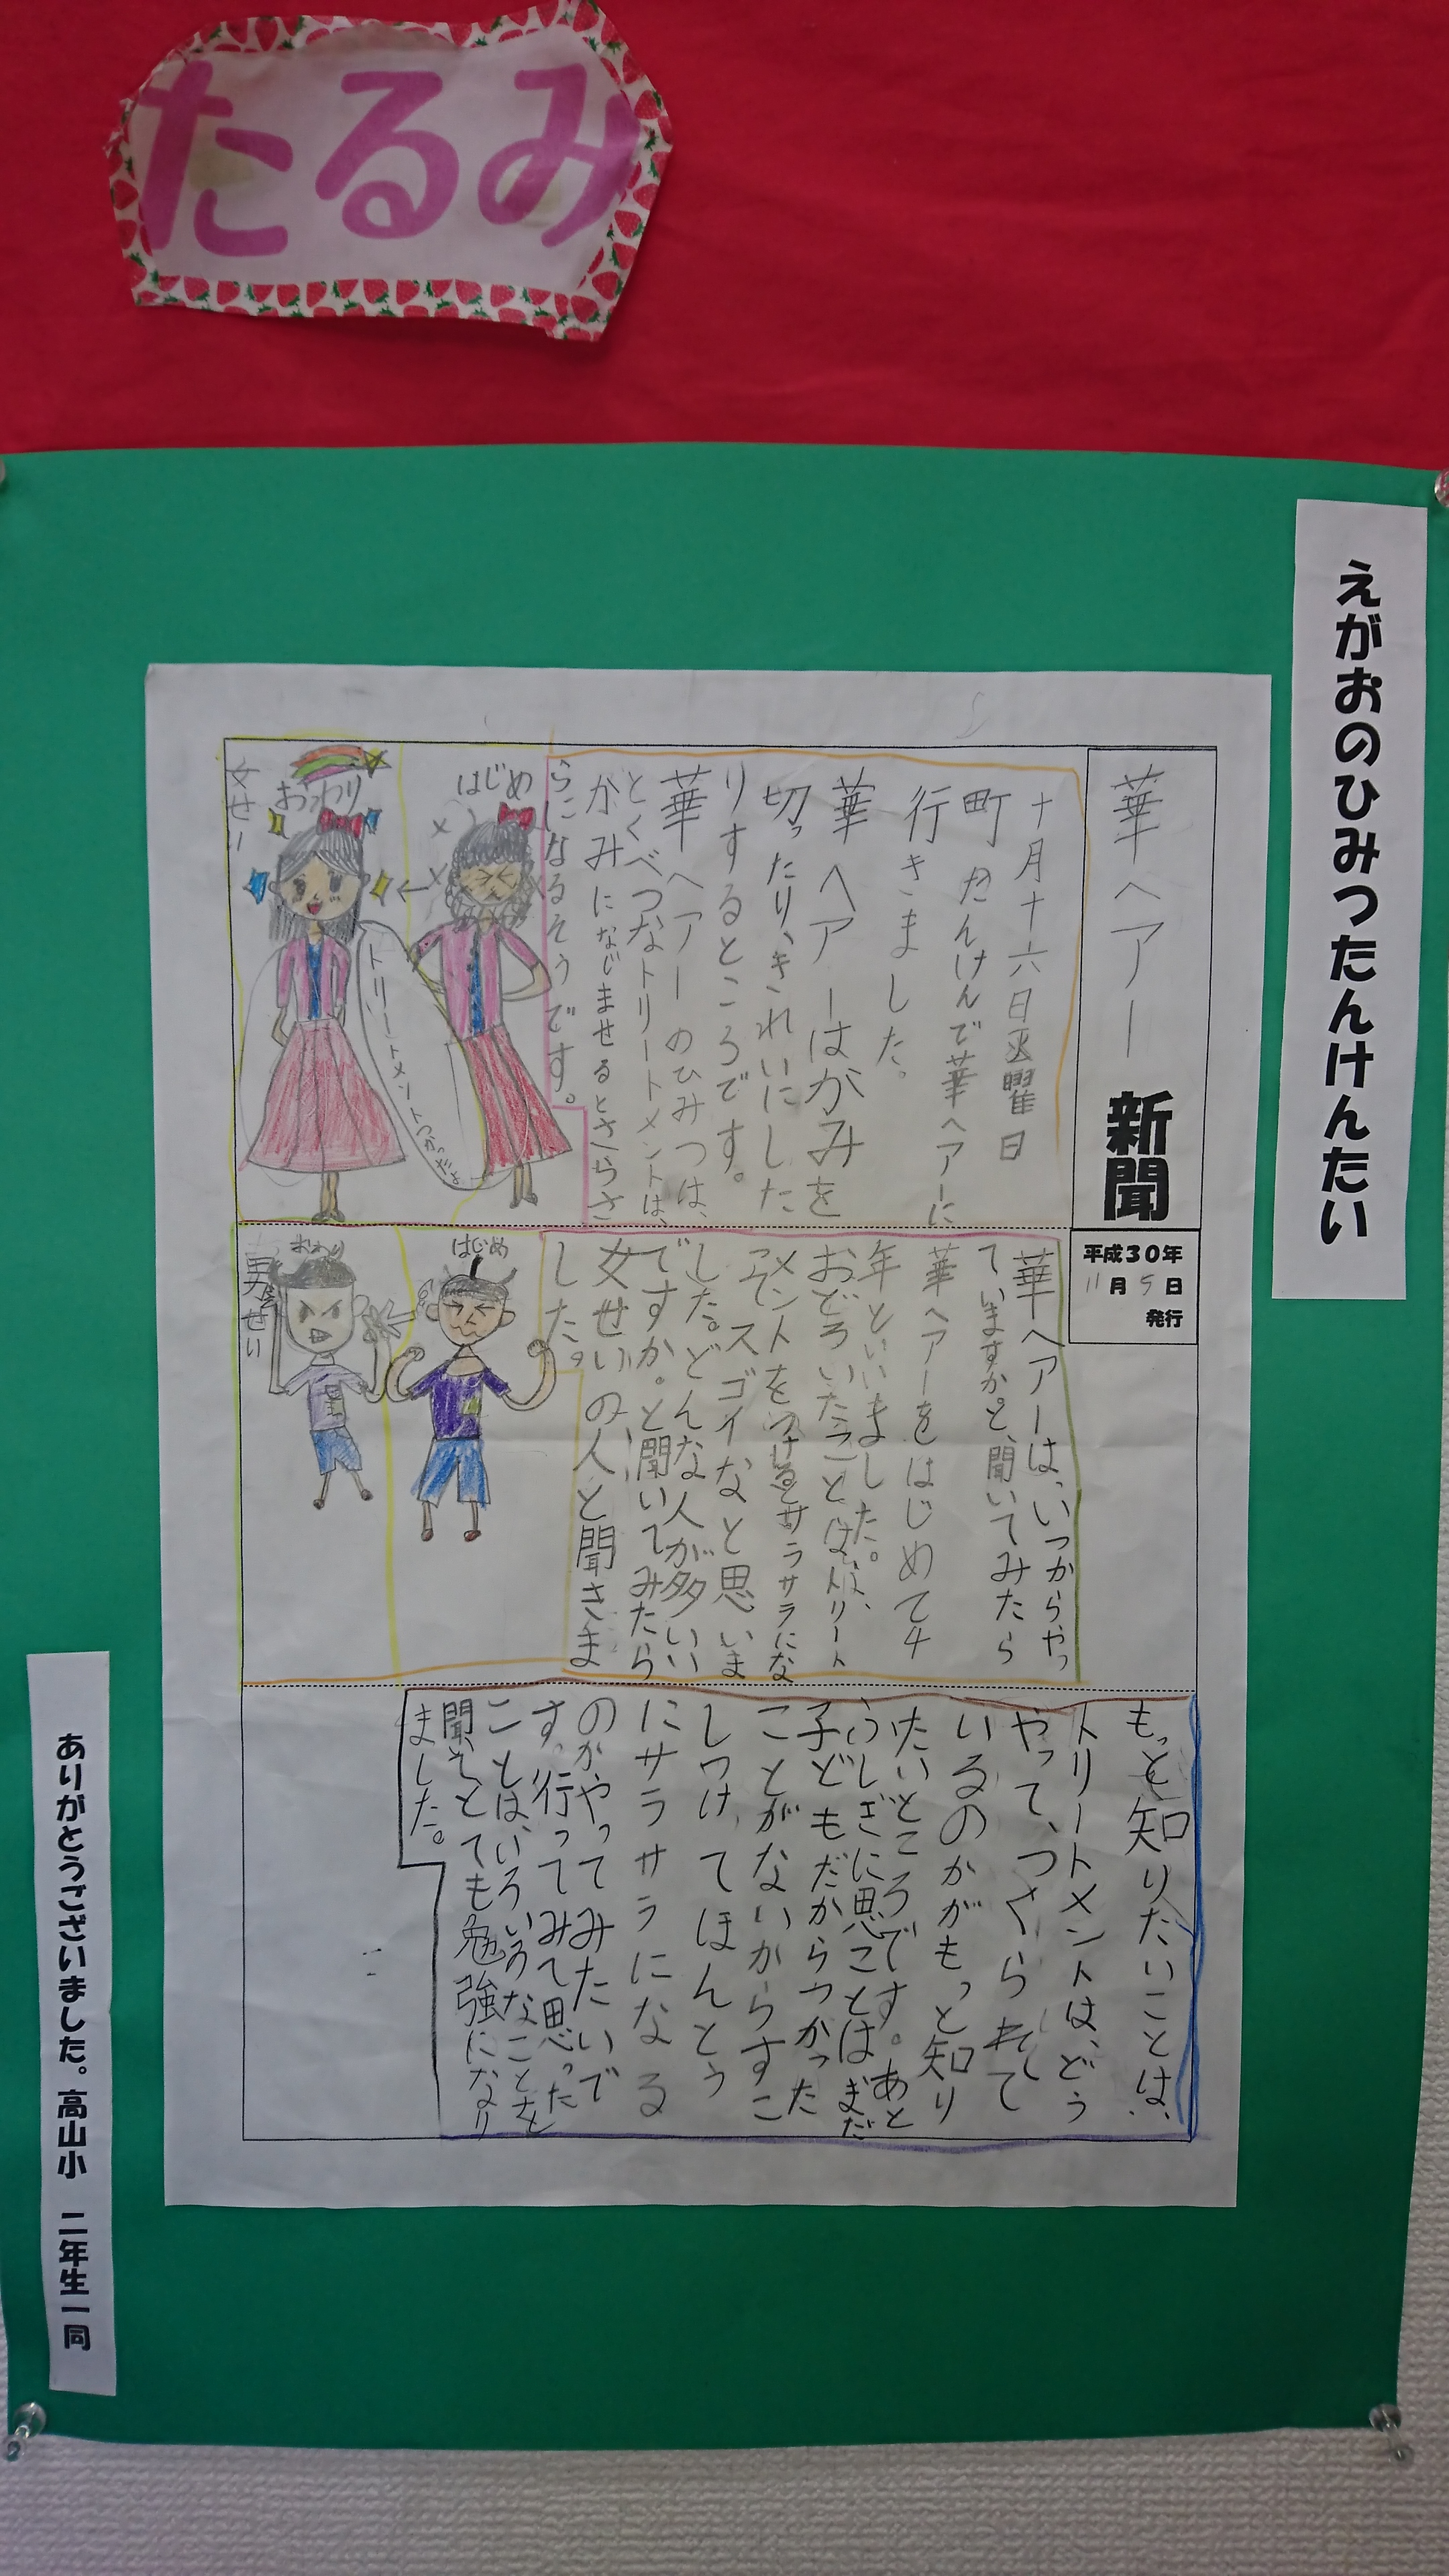 たるみ
えがおのひみつたんけんたい
華ヘアー 新聞
平成30年
11月5日
発行
十月十六日火曜日
町たんけんで華ヘアーに
行きました。
華ヘアーはかみを
切ったり、きれいにした
りするところです。
華ヘアーのひみつは、
とくべつなトリートメントは、
かみになじませるとさらさ
らになるそうです。
はじめ
おわり
女せい
トリートメントつかったよ
華ヘアーは、いつからやっ
ていますか。と、聞いてみたら
華ヘアーをはじめて4
年といいました。
おどろいたことは、トリート
メントをつけるとサラサラにな
ってスゴイなと思いま
した。どんな人が多いい
ですか。と聞いてみたら
女せいの人と聞きま
した。
はじめ
おわり
男せい
もっと知りたいことは、
トリートメントは、どう
やって、つくられて
いるのかがもっと知り
たいところです。あと
ふしぎに思ことはまだ
子どもだからつかった
ことがないからすこ
しつけてほんとう
にサラサラになる
のかやってみたいで
す。行ってみて思った
ことは、いろいろなことを
聞いてとても勉強になり
ました。
ありがとうございました。高山小 二年生一同